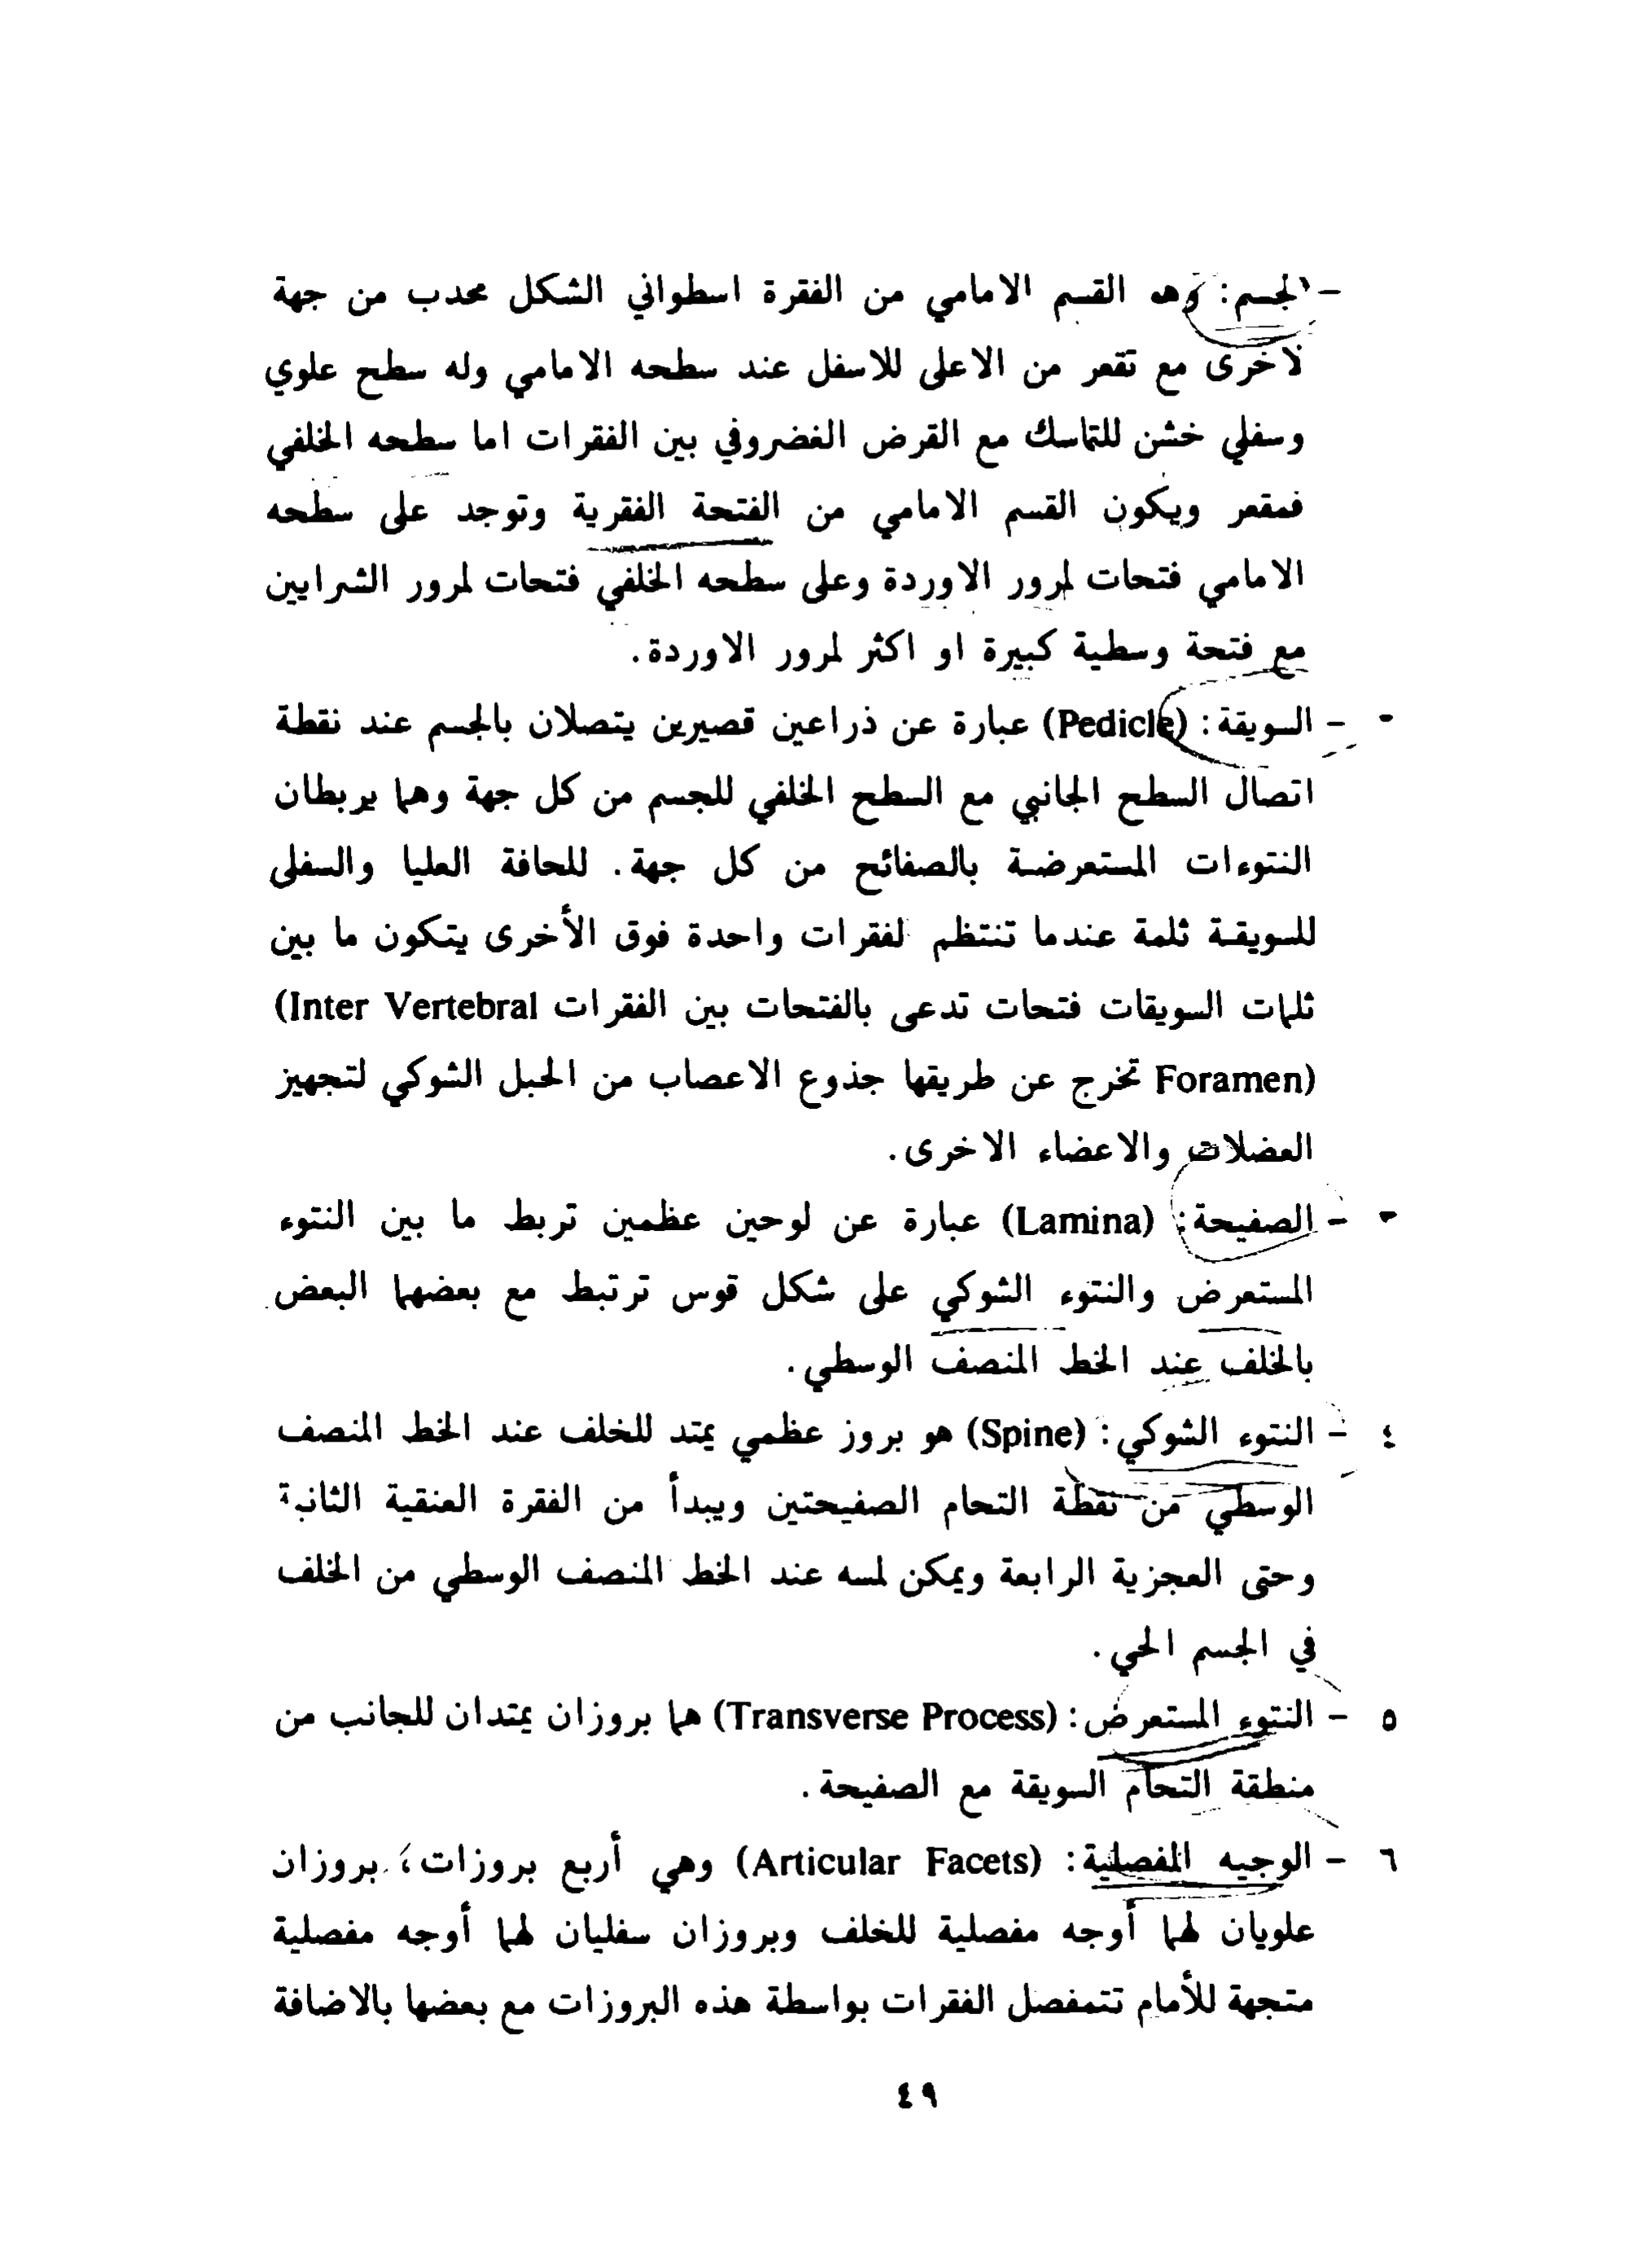 - الجسم: وهو القسم الامامي من الفقرة اسطواني الشكل محدب من جهة
لاخرى مع تقعر من الاعلى للاسفل عند سطحه الامامي وله سطح علوي
وسفلي خشن للتماسك مع القرض الغضروفي بين الفقرات اما سطحه الخلفي
فمقعر ويكون القسم الامامي من الفتحة الفقرية وتوجد على سطحه
الامامي فتحات لمرور الاوردة وعلى سطحه الخلفي فتحات لمرور الشرايين
مع فتحة وسطية كبيرة او اكثر لمرور الاوردة.
- السويقة: (Pedicle) عبارة عن ذراعين قصيرين يتصلان بالجسم عند نقطة
اتصال السطح الجانبي مع السطح الخلفي للجسم من كل جهة وهما يربطان
النتوءات المستعرضة بالصفائح من كل جهة. للحافة العليا والسفلى
للسويقة ثلمة عندما تنتظم لفقرات واحدة فوق الأخرى يتكون ما بين
ثلمات السويقات فتحات تدعى بالفتحات بين الفقرات (Inter Vertebral
Foramen) تخرج عن طريقها جذوع الاعصاب من الحبل الشوكي لتجهيز
العضلات والاعضاء الاخرى.
- الصفيحة: (Lamina) عبارة عن لوحين عظمين تربط ما بين النتوء
المستعرض والنتوء الشوكي على شكل قوس ترتبط مع بعضهما البعض
بالخلف عند الخط المنصف الوسطي.
٤ - النتوء الشوكي: (Spine) هو بروز عظمي يمتد للخلف عند الخط المنصف
الوسطي من نقطة التحام الصفيحتين ويبدأ من الفقرة العنقية الثانية
وحتى العجزية الرابعة ويمكن لمسه عند الخط المنصف الوسطي من الخلف
في الجسم الحي.
٥ - النتوء المستعرض: (Transverse Process) هما بروزان يمتدان للجانب من
منطقة التحام السويقة مع الصفيحة.
٦ - الوجيه المفصلية: (Articular Facets) وهي أربع بروزات؛ بروزان
علويان لهما أوجه مفصلية للخلف وبروزان سفليان لهما أوجه مفصلية
متجهة للأمام تتمفصل الفقرات بواسطة هذه البروزات مع بعضها بالاضافة
٤٩